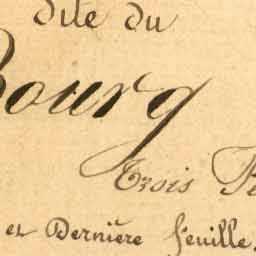 dite du
Bourg
Trois
et Dernière feuille.